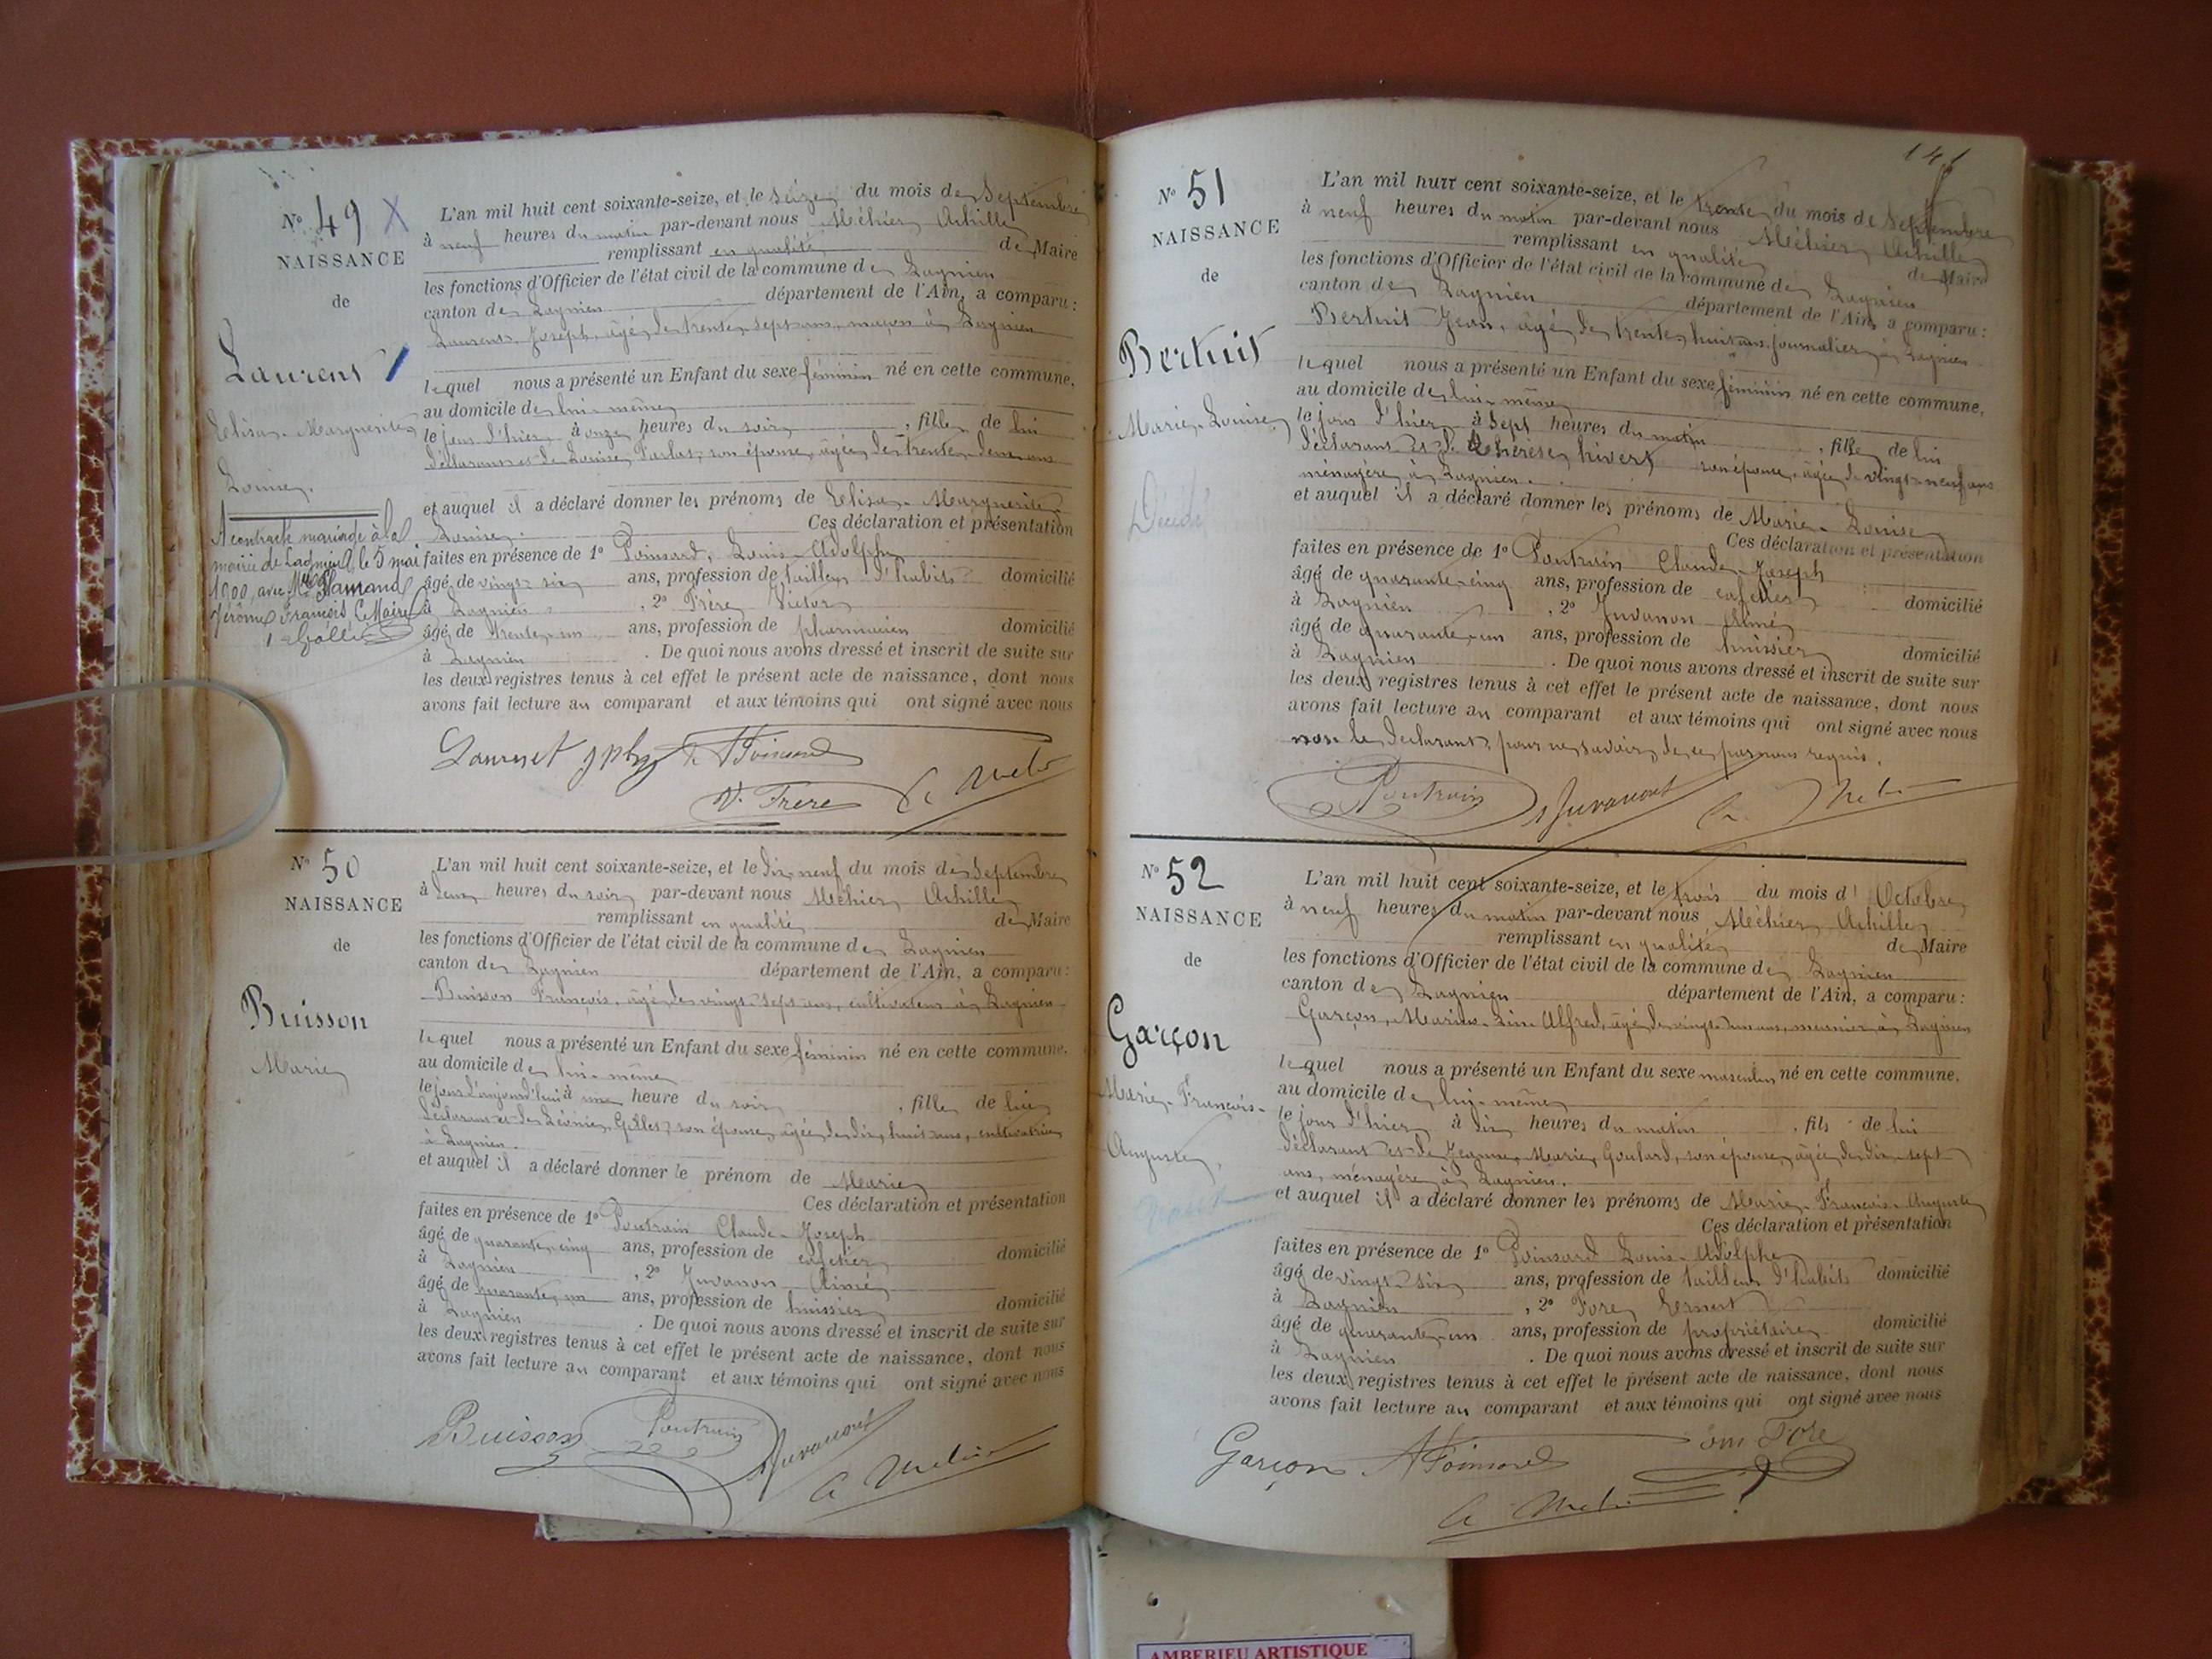 N° 49 X
NAISSANCE
de
Laurent
Elisa-Marguerite
Louise
A contracté mariage à la
mairie de Lagnieu, le 5 mai
1900, avec Mr
Jérôme François Le Maire
L'an mil huit cent soixante-seize, et le seize du mois de Septembre
à neuf heures du matin par-devant nous Méhier Achille
remplissant en qualité de Maire
les fonctions d'Officier de l'état civil de la commune de Lagnieu
canton de Lagnieu département de l'Ain, a comparu :
Laurent Joseph, âgé de trente sept ans, maçon à Lagnieu
lequel nous a présenté un Enfant du sexe féminin né en cette commune,
au domicile de lui-même
le jour d'hier à onze heures du soir, fille de lui
déclarant et de Louise son épouse, âgée de trente deux ans
et auquel il a déclaré donner les prénoms de Elisa-Marguerite
Louise. Ces déclaration et présentation
faites en présence de 1° Poinsard, Louis-Adolphe
âgé de vingt six ans, profession de tailleur d'habits domicilié
à Lagnieu, 2° Frère Victor
âgé de trente-un ans, profession de pharmacien domicilié
à Lagnieu. De quoi nous avons dressé et inscrit de suite sur
les deux registres tenus à cet effet le présent acte de naissance, dont nous
avons fait lecture au comparant et aux témoins qui ont signé avec nous
Laurent jph A Poinsard
V. Frere
N° 50
NAISSANCE
de
Buisson
Marie
L'an mil huit cent soixante-seize, et le dix neuf du mois de Septembre
à deux heures du soir par-devant nous Méhier Achille
remplissant en qualité de Maire
les fonctions d'Officier de l'état civil de la commune de Lagnieu
canton de Lagnieu département de l'Ain, a comparu :
Buisson François, âgé de vingt sept ans, cultivateur à Lagnieu
lequel nous a présenté un Enfant du sexe féminin né en cette commune,
au domicile de lui-même
le jour d'aujourd'hui à une heure du soir, fille de lui
déclarant et de Léonie Gilles, son épouse, âgée de dix huit ans, cultivatrice
à Lagnieu.
et auquel il a déclaré donner le prénom de Marie
Ces déclaration et présentation
faites en présence de 1° Poutrain Claude-Joseph
âgé de quarante-cinq ans, profession de cafetier domicilié
à Lagnieu, 2° Juvanon Aimé
âgé de quarante-un ans, profession de huissier domicilié
à Lagnieu. De quoi nous avons dressé et inscrit de suite sur
les deux registres tenus à cet effet le présent acte de naissance, dont nous
avons fait lecture au comparant et aux témoins qui ont signé avec nous
Buisson Poutrain Juvanon
141
N° 51
NAISSANCE
de
Bertuit
Marie-Louise
Décédé
L'an mil huit cent soixante-seize, et le trente du mois de Septembre
à neuf heures du matin par-devant nous Méhier Achille
remplissant en qualité de Maire
les fonctions d'Officier de l'état civil de la commune de Lagnieu
canton de Lagnieu département de l'Ain, a comparu :
Bertuit Jean, âgé de trente huit ans, journalier à Lagnieu
lequel nous a présenté un Enfant du sexe féminin né en cette commune,
au domicile de lui-même
le jour d'hier à sept heures du matin, fille de lui
déclarant et de Thérèse hivert son épouse, âgée de vingt-neuf ans
ménagère à Lagnieu.
et auquel il a déclaré donner les prénoms de Marie-Louise
Ces déclaration et présentation
faites en présence de 1° Poutrain Claude-Joseph
âgé de quarante-cinq ans, profession de cafetier domicilié
à Lagnieu, 2° Juvanon Aimé
âgé de quarante-un ans, profession de huissier domicilié
à Lagnieu. De quoi nous avons dressé et inscrit de suite sur
les deux registres tenus à cet effet le présent acte de naissance, dont nous
avons fait lecture au comparant et aux témoins qui ont signé avec nous
non le déclarant, pour ne savoir de ce par nous requis.
Poutrain Juvanon
N° 52
NAISSANCE
de
Garçon
Marie-François-
Auguste
L'an mil huit cent soixante-seize, et le trois du mois d'Octobre
à neuf heures du matin par-devant nous Méhier Achille
remplissant en qualité de Maire
les fonctions d'Officier de l'état civil de la commune de Lagnieu
canton de Lagnieu département de l'Ain, a comparu :
Garçon, Marius Alfred, âgé de vingt ans, meunier à Lagnieu
lequel nous a présenté un Enfant du sexe masculin né en cette commune,
au domicile de lui-même
le jour d'hier à dix heures du matin, fils de lui
déclarant et de Jeanne Marie Goulard, son épouse, âgée de dix-sept
ans, ménagère à Lagnieu.
et auquel il a déclaré donner les prénoms de Marie-François-Auguste
Ces déclaration et présentation
faites en présence de 1° Poinsard Louis-Adolphe
âgé de vingt six ans, profession de tailleur d'habits domicilié
à Lagnieu, 2° Fore Ernest
âgé de quarante-un ans, profession de propriétaire domicilié
à Lagnieu. De quoi nous avons dressé et inscrit de suite sur
les deux registres tenus à cet effet le présent acte de naissance, dont nous
avons fait lecture au comparant et aux témoins qui ont signé avec nous
Garçon A Poinsard Fore
AMBERIEU ARTISTIQUE